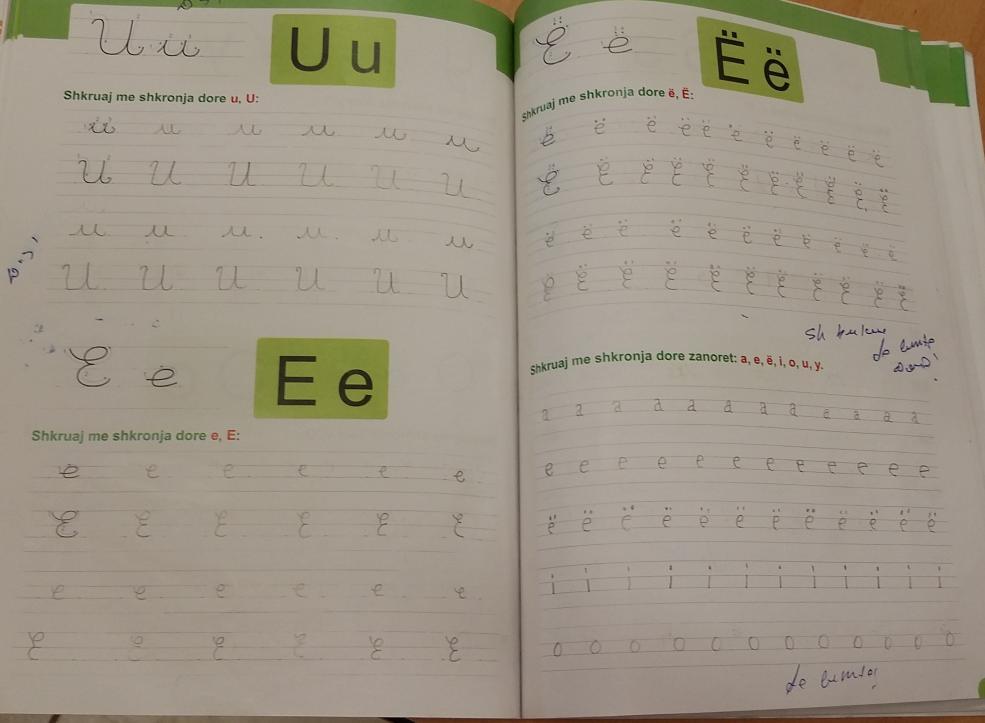 U u
U u
Shkruaj me shkronja dore u, U:
u u u u u u
U U U U U U
u u u u u u
U U U U U U
E e
E e
Shkruaj me shkronja dore e, E:
e e e e e e
E E E E E E
e e e e e e
E E E E E E
Ë ë
Ë ë
Shkruaj me shkronja dore ë, Ë:
ë ë ë ë ë ë ë ë ë ë ë
Ë Ë Ë Ë Ë Ë Ë Ë Ë Ë Ë
ë ë ë ë ë ë ë ë ë ë ë
Ë Ë Ë Ë Ë Ë Ë Ë Ë Ë
Shkruaj me shkronja dore zanoret: a, e, ë, i, o, u, y.
a a a a a a a a a a a a
e e e e e e e e e e e e
ë ë ë ë ë ë ë ë ë ë ë ë
i i i i i i i i i i i i
o o o o o o o o o o o